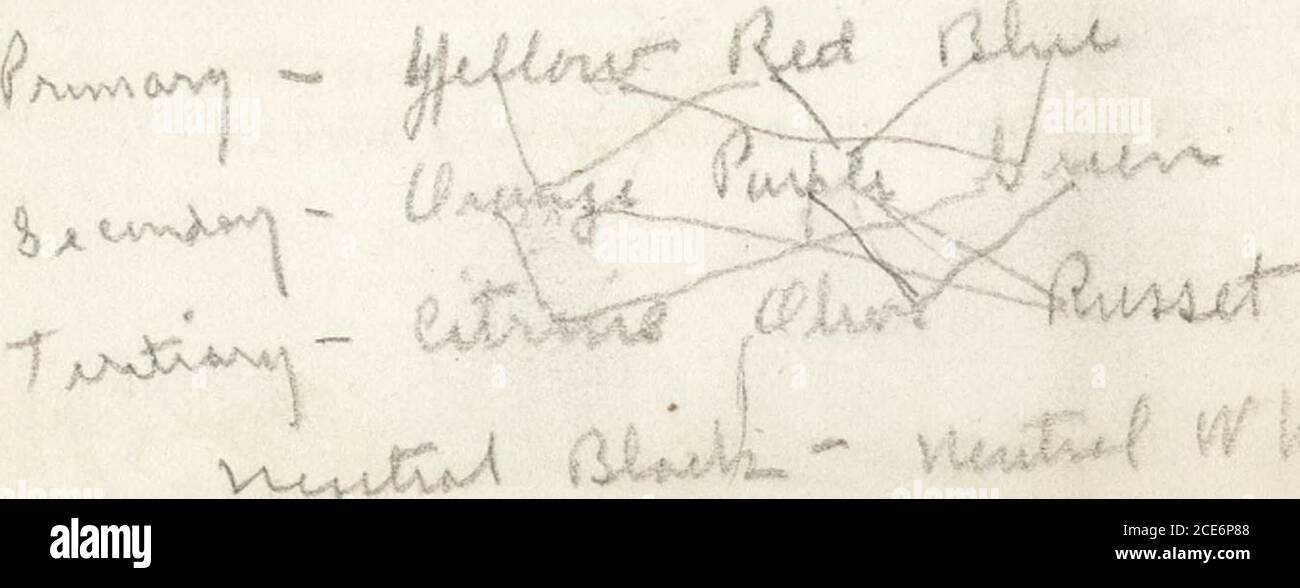 Primary - Yellow Red Blue
Secondary - Orange Purple Green
Tertiary - Citrine Olive Russet
Neutral Black - Neutral W
alamy
Image ID: 2CE6P88
www.alamy.com